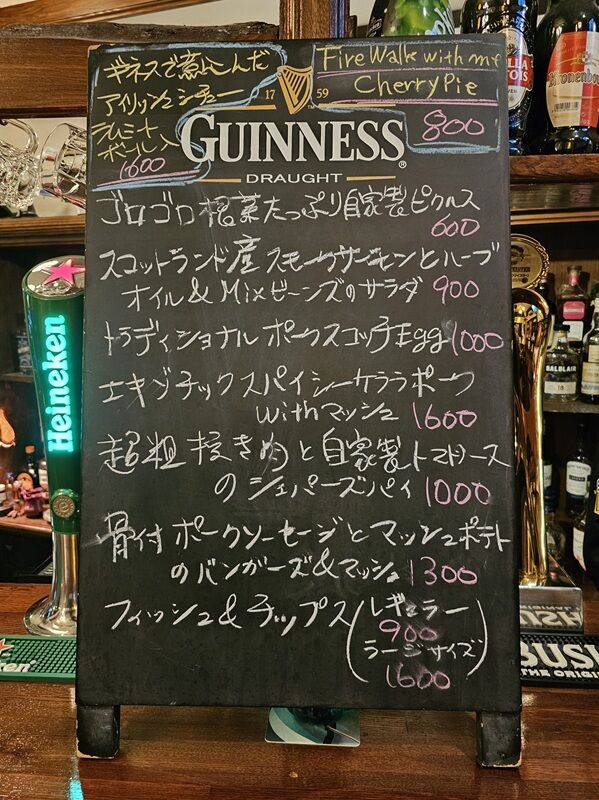 ギネスで煮込んだ
アイリッシュシチュー
ラムミート
ボール入
1600
Fire Walk with me
Cherry Pie
800
17 59
GUINNESS
DRAUGHT
ゴロゴロ根菜たっぷり自家製ピクルス
600
スコットランド産スモークサーモンとハーブ
オイル&Mixビーンズのサラダ 900
トラディショナルポークスコッチEgg 1000
エキゾチックスパイシーケララポーク
withマッシュ 1600
超粗挽き肉と自家製トマトソース
のシェパーズパイ 1000
骨付ポークソーセージとマッシュポテト
のバンガーズ&マッシュ 1300
フィッシュ&チップス
レギュラー
900
ラージサイズ
1600
Heineken
BALBLAIR
BUSH
THE ORIGIN